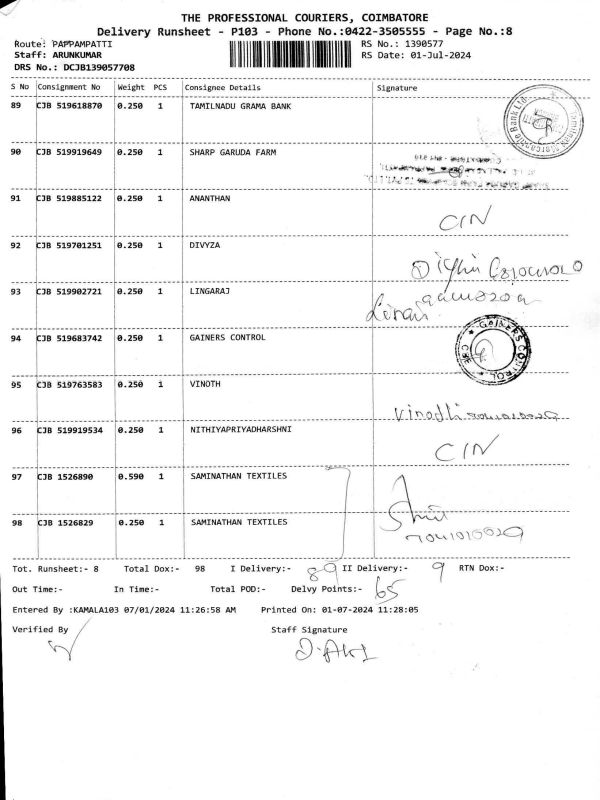 THE PROFESSIONAL COURIERS, COIMBATORE
Delivery Runsheet - P103 - Phone No.:0422-3505555 - Page No.:8
Route: PAPPAMPATTI RS No.: 1390577
Staff: ARUNKUMAR RS Date: 01-Jul-2024
DRS No.: DCJB139057708
S No Consignment No Weight PCS Consignee Details Signature
89 CJB 519618870 0.250 1 TAMILNADU GRAMA BANK
90 CJB 519919649 0.250 1 SHARP GARUDA FARM
91 CJB 519885122 0.250 1 ANANTHAN
C/N
92 CJB 519701251 0.250 1 DIVYZA
93 CJB 519902721 0.250 1 LINGARAJ
94 CJB 519683742 0.250 1 GAINERS CONTROL
GAINERS CONTROL
CBE
95 CJB 519763583 0.250 1 VINOTH
Vinodh
96 CJB 519919534 0.250 1 NITHIYAPRIYADHARSHNI
C/N
97 CJB 1526890 0.590 1 SAMINATHAN TEXTILES
98 CJB 1526829 0.250 1 SAMINATHAN TEXTILES
Tot. Runsheet:- 8 Total Dox:- 98 I Delivery:- 89 II Delivery:- 9 RTN Dox:-
Out Time:- In Time:- Total POD:- Delvy Points:- 65
Entered By :KAMALA103 07/01/2024 11:26:58 AM Printed On: 01-07-2024 11:28:05
Verified By Staff Signature